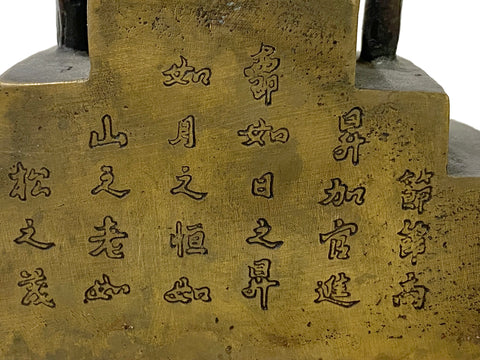 節節高
昇加官進
爵如日之昇
如月之恒如
山之老如
松之茂